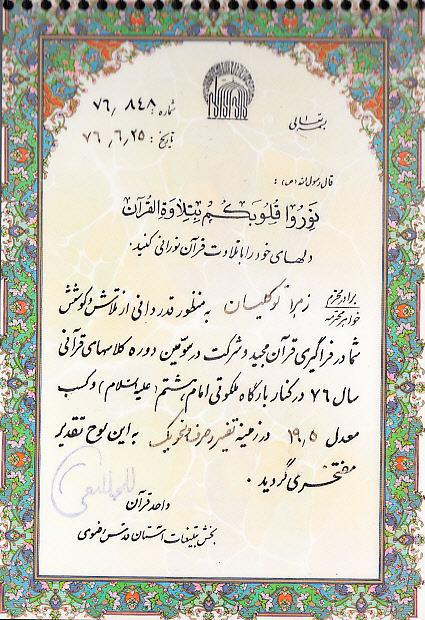 بسمه تعالی
شماره: ۷۶٫۸۴۸
تاریخ: ۷۶٫۶٫۲۵
قال رسول الله (ص):
نَوِّرُوا قُلُوبَكُمْ بِتِلاوَةِ القُرآن
دلهای خود را با تلاوت قرآن نورانی کنید.
برادر محترم
خواهر محترمه زهرا توکلیان به منظور قدردانی از تلاش و کوشش
شما در فراگیری قرآن مجید و شرکت در سومین دوره کلاسهای قرآنی
سال ۷۶ در کنار بارگاه ملکوتی امام هشتم (علیه السلام) و کسب
معدل ۱۹٫۵ در زمینه تفسیر و صرف و نحو یک به این لوح تقدیر
مفتخر می گردید.
واحد قرآن
بخش تبلیغات آستان قدس رضوی